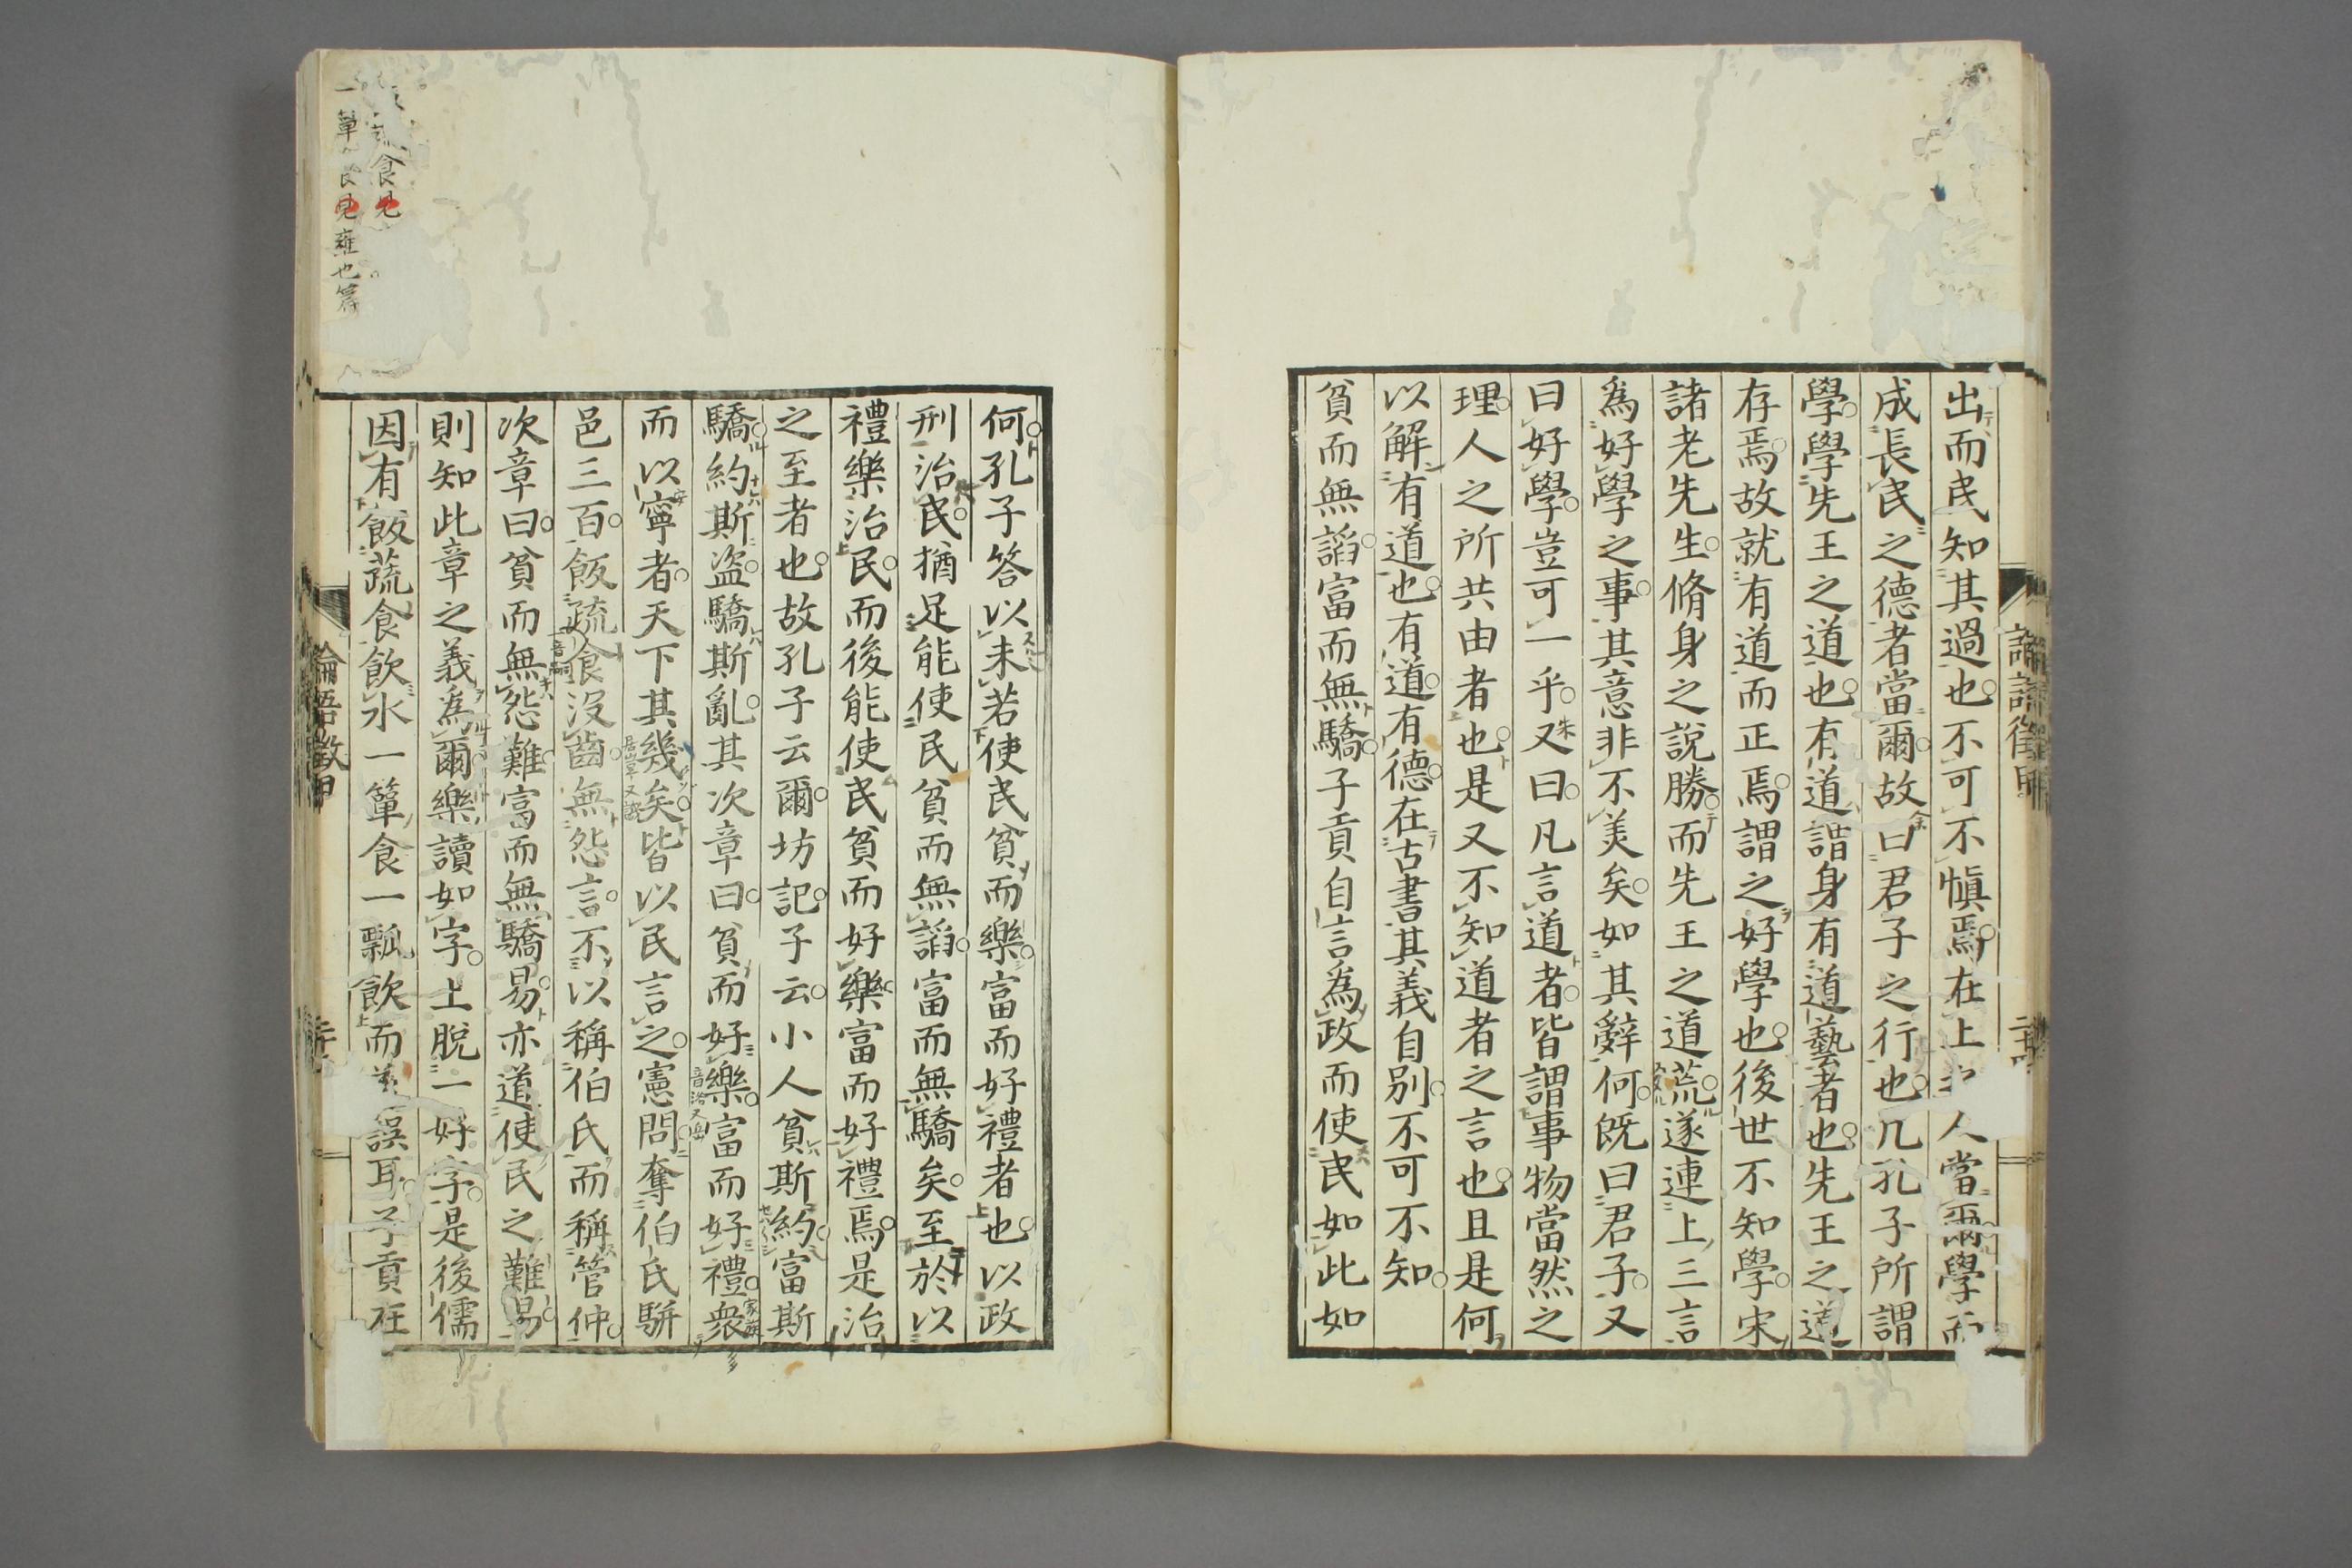 出而民知其過也不可不慎焉在上之人當爾學而
成長民之德者當爾故曰君子之行也凡孔子所謂
學學先王之道也有道謂身有道藝者也先王之道
存焉故就有道而正焉謂之好學也後世不知學宋
諸老先生脩身之說勝而先王之道荒遂連上三言
爲好學之事其意非不美矣如其辭何既曰君子又
曰好學豈可一乎又曰凡言道者皆謂事物當然之
理人之所共由者也是又不知道者之言也且是何
以解有道也有道有德在古書其義自別不可不知
貧而無諂富而無驕子貢自言爲政而使民如此如
何孔子答以未若使民貧而樂富而好禮者也以政
刑治民猶足能使民貧而無諂富而無驕矣至於以
禮樂治民而後能使民貧而好樂富而好禮焉是治
之至者也故孔子云爾坊記子云小人貧斯約富斯
驕約斯盜驕斯亂其次章曰貧而好樂富而好禮衆
而以寧者天下其幾矣皆以民言之憲問奪伯氏騈
邑三百飯疏食沒齒無怨言不以稱伯氏而稱管仲
次章曰貧而無怨難富而無驕易亦道使民之難易
則知此章之義爲爾樂讀如字上脫一好字是後儒
因有飯蔬食飲水一簞食一瓢飲而誤耳子貢在
論語徵甲
食見
一簞食見雍也篇